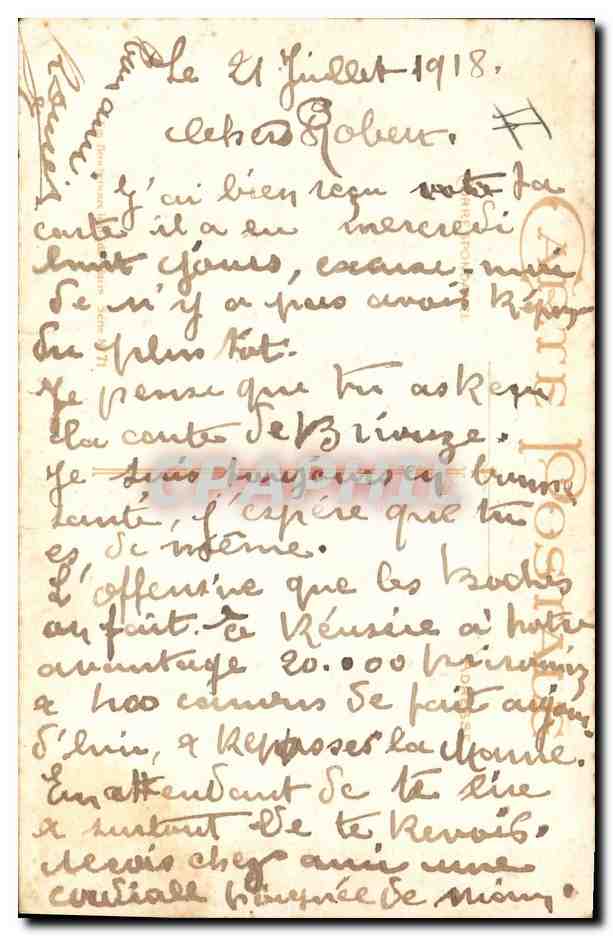 Le 21 Juillet 1918.
cher Robert.
II
J'ai bien reçu ta
carte il a eu mercredi
huit jours, excuse-moi
de n'y a pas avois répon
du plus tôt.
Je pense que tu as reçu
la carte de Briouze.
Je suis toujours en bonne
santé, j'espère que tu
es de même.
L'offensive que les Boches
on fait a Réussie à notre
avantage 20.000 prisonniz
& 400 canons de fait aujour-
d'hui, & repasser la Marne.
En attendant de te lire
& surtout de te revois.
Recois cher ami une
cordiale poignée de main.
ton ami
CARTE POSTALE
CORRESPONDANCE
ADRESSE
CPAPHIL